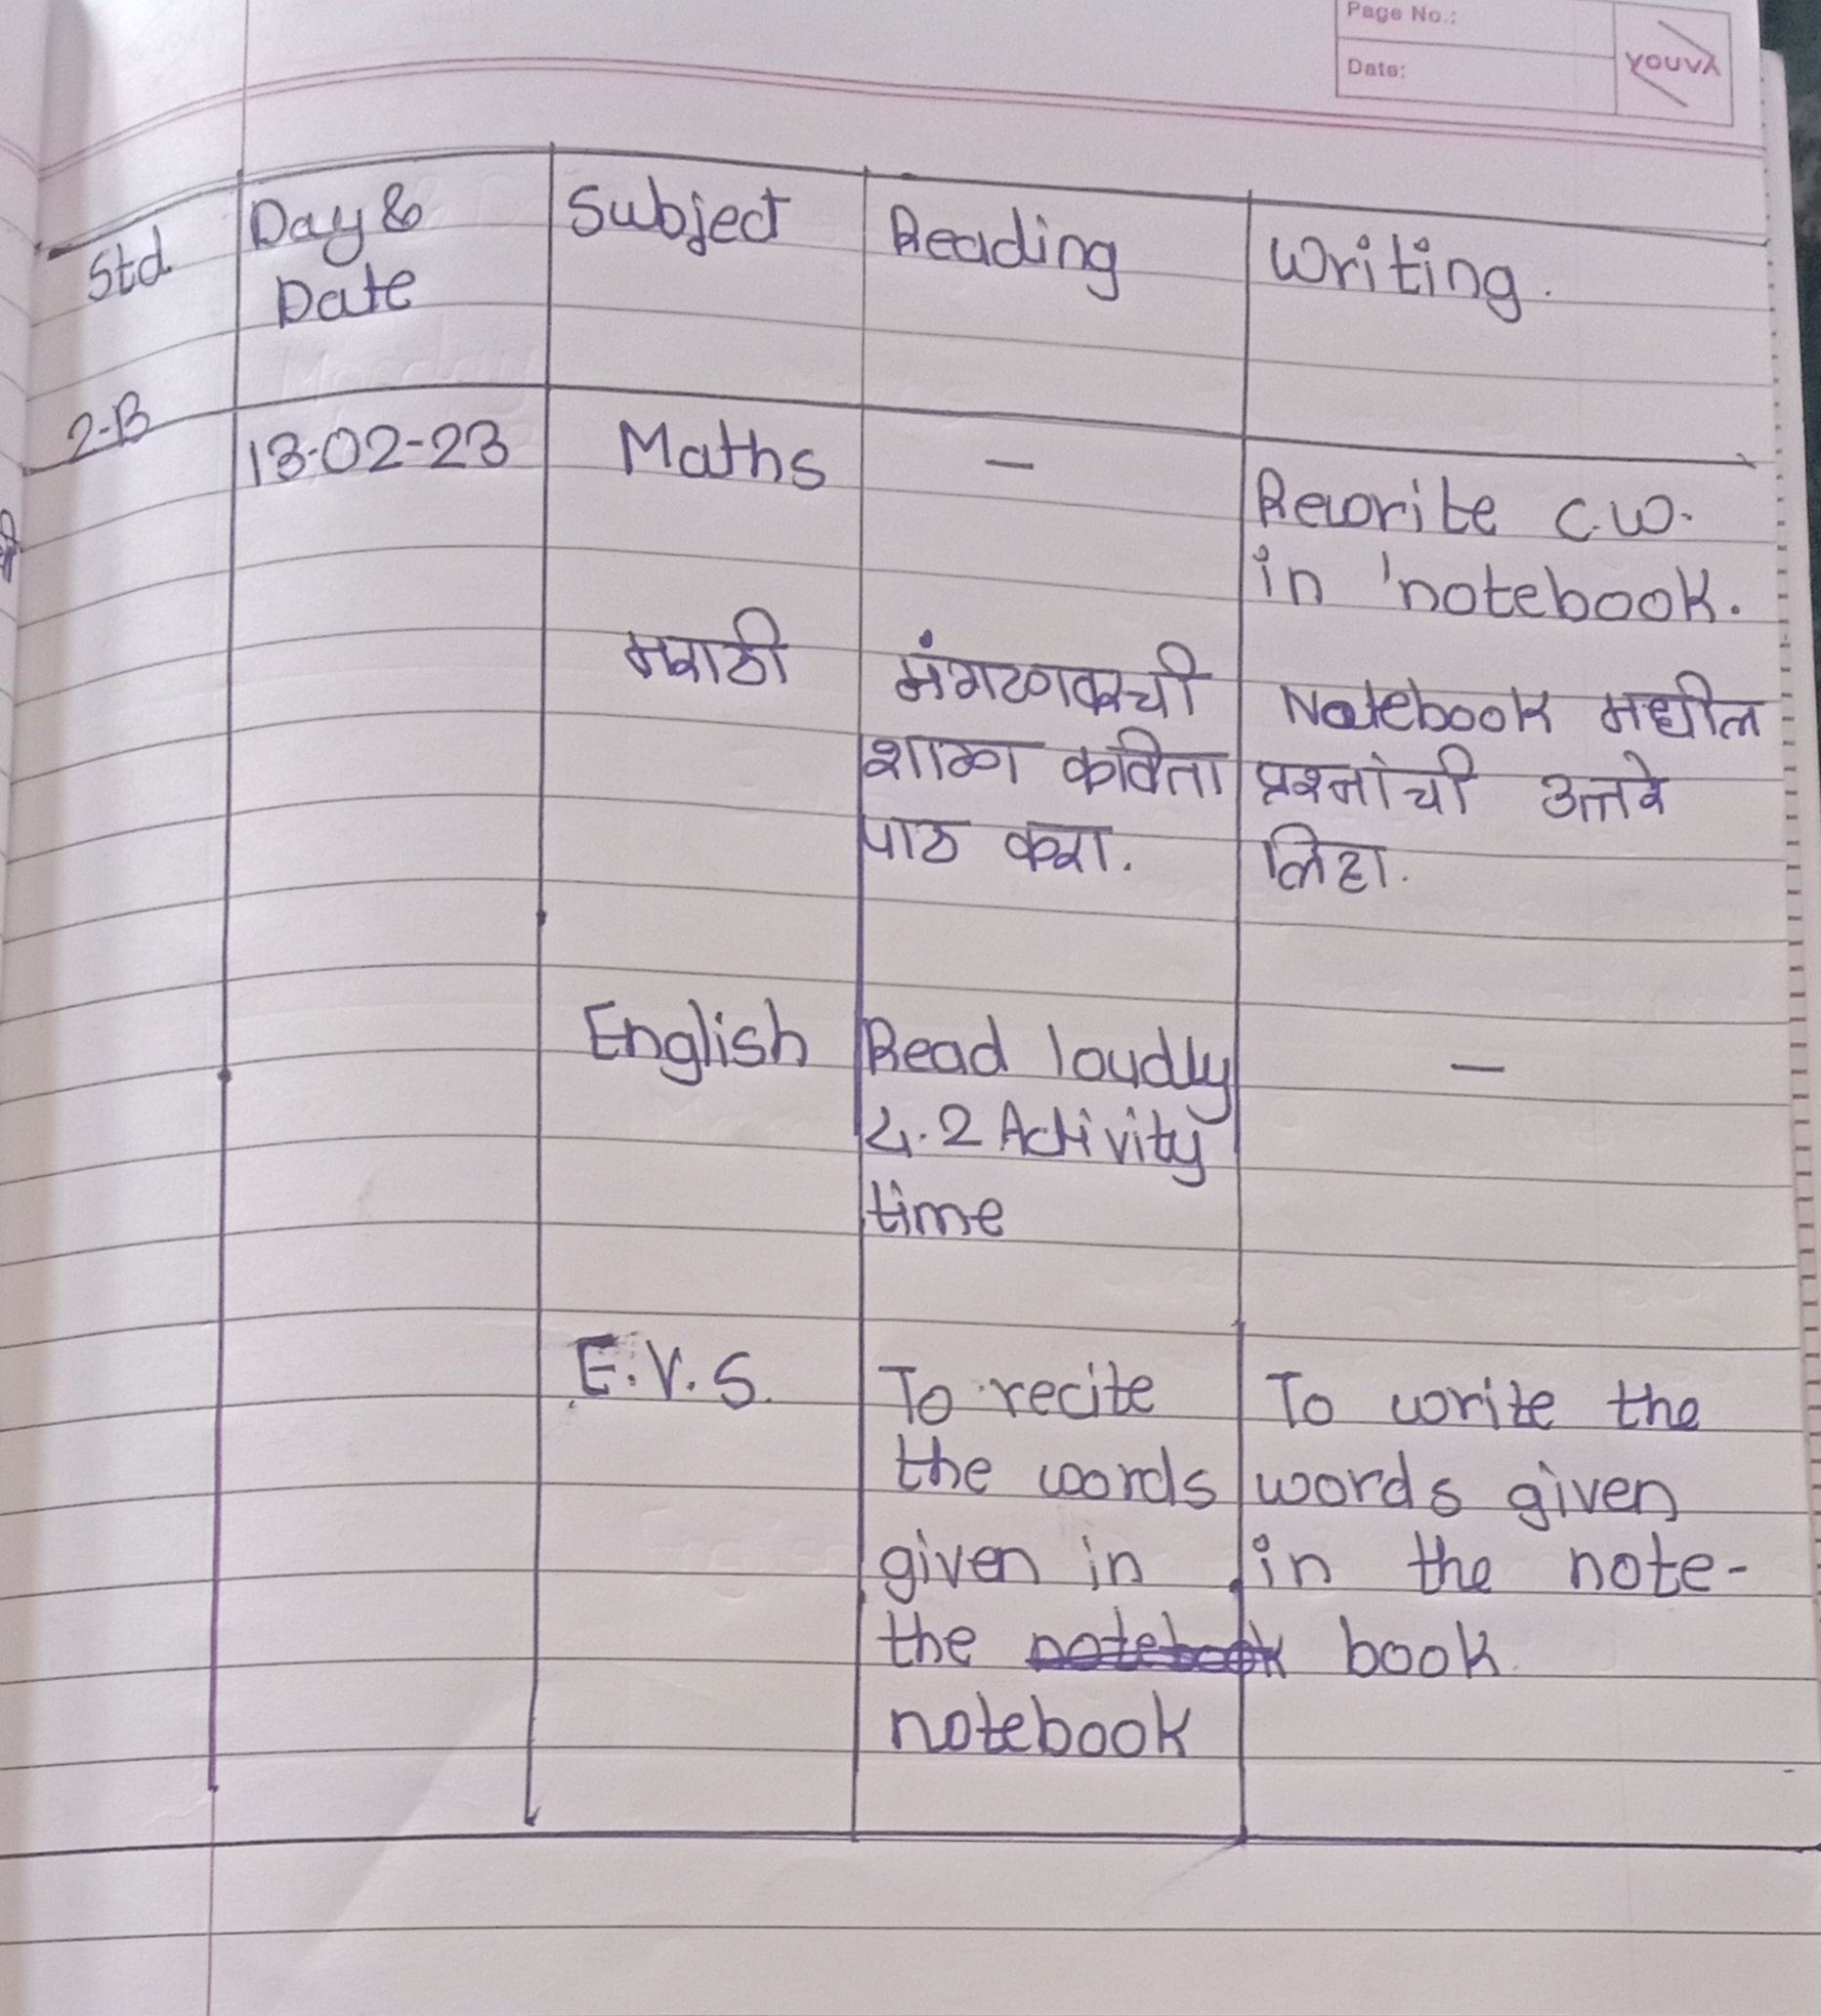 Page No.:
Date:
YOUVA
Std
Day &
Date
Subject
Reading
Writing.
2-B
13-02-23
Maths
—
Rewrite C.W.
in notebook.
मराठी
मंगळावरची
शाळा कविता
पाठ करा.
Notebook मधील
प्रश्नांची उत्तरे
लिहा.
English
Read loudly
4.2 Activity
time
—
E.V.S.
To recite
the words
given in
the notebook
notebook
To write the
words given
in the note-
book.